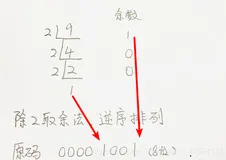 余数
2 9 1
2 4 0
2 2 0
1
除2取余法 逆序排列
原码 0000 1001 (8位)